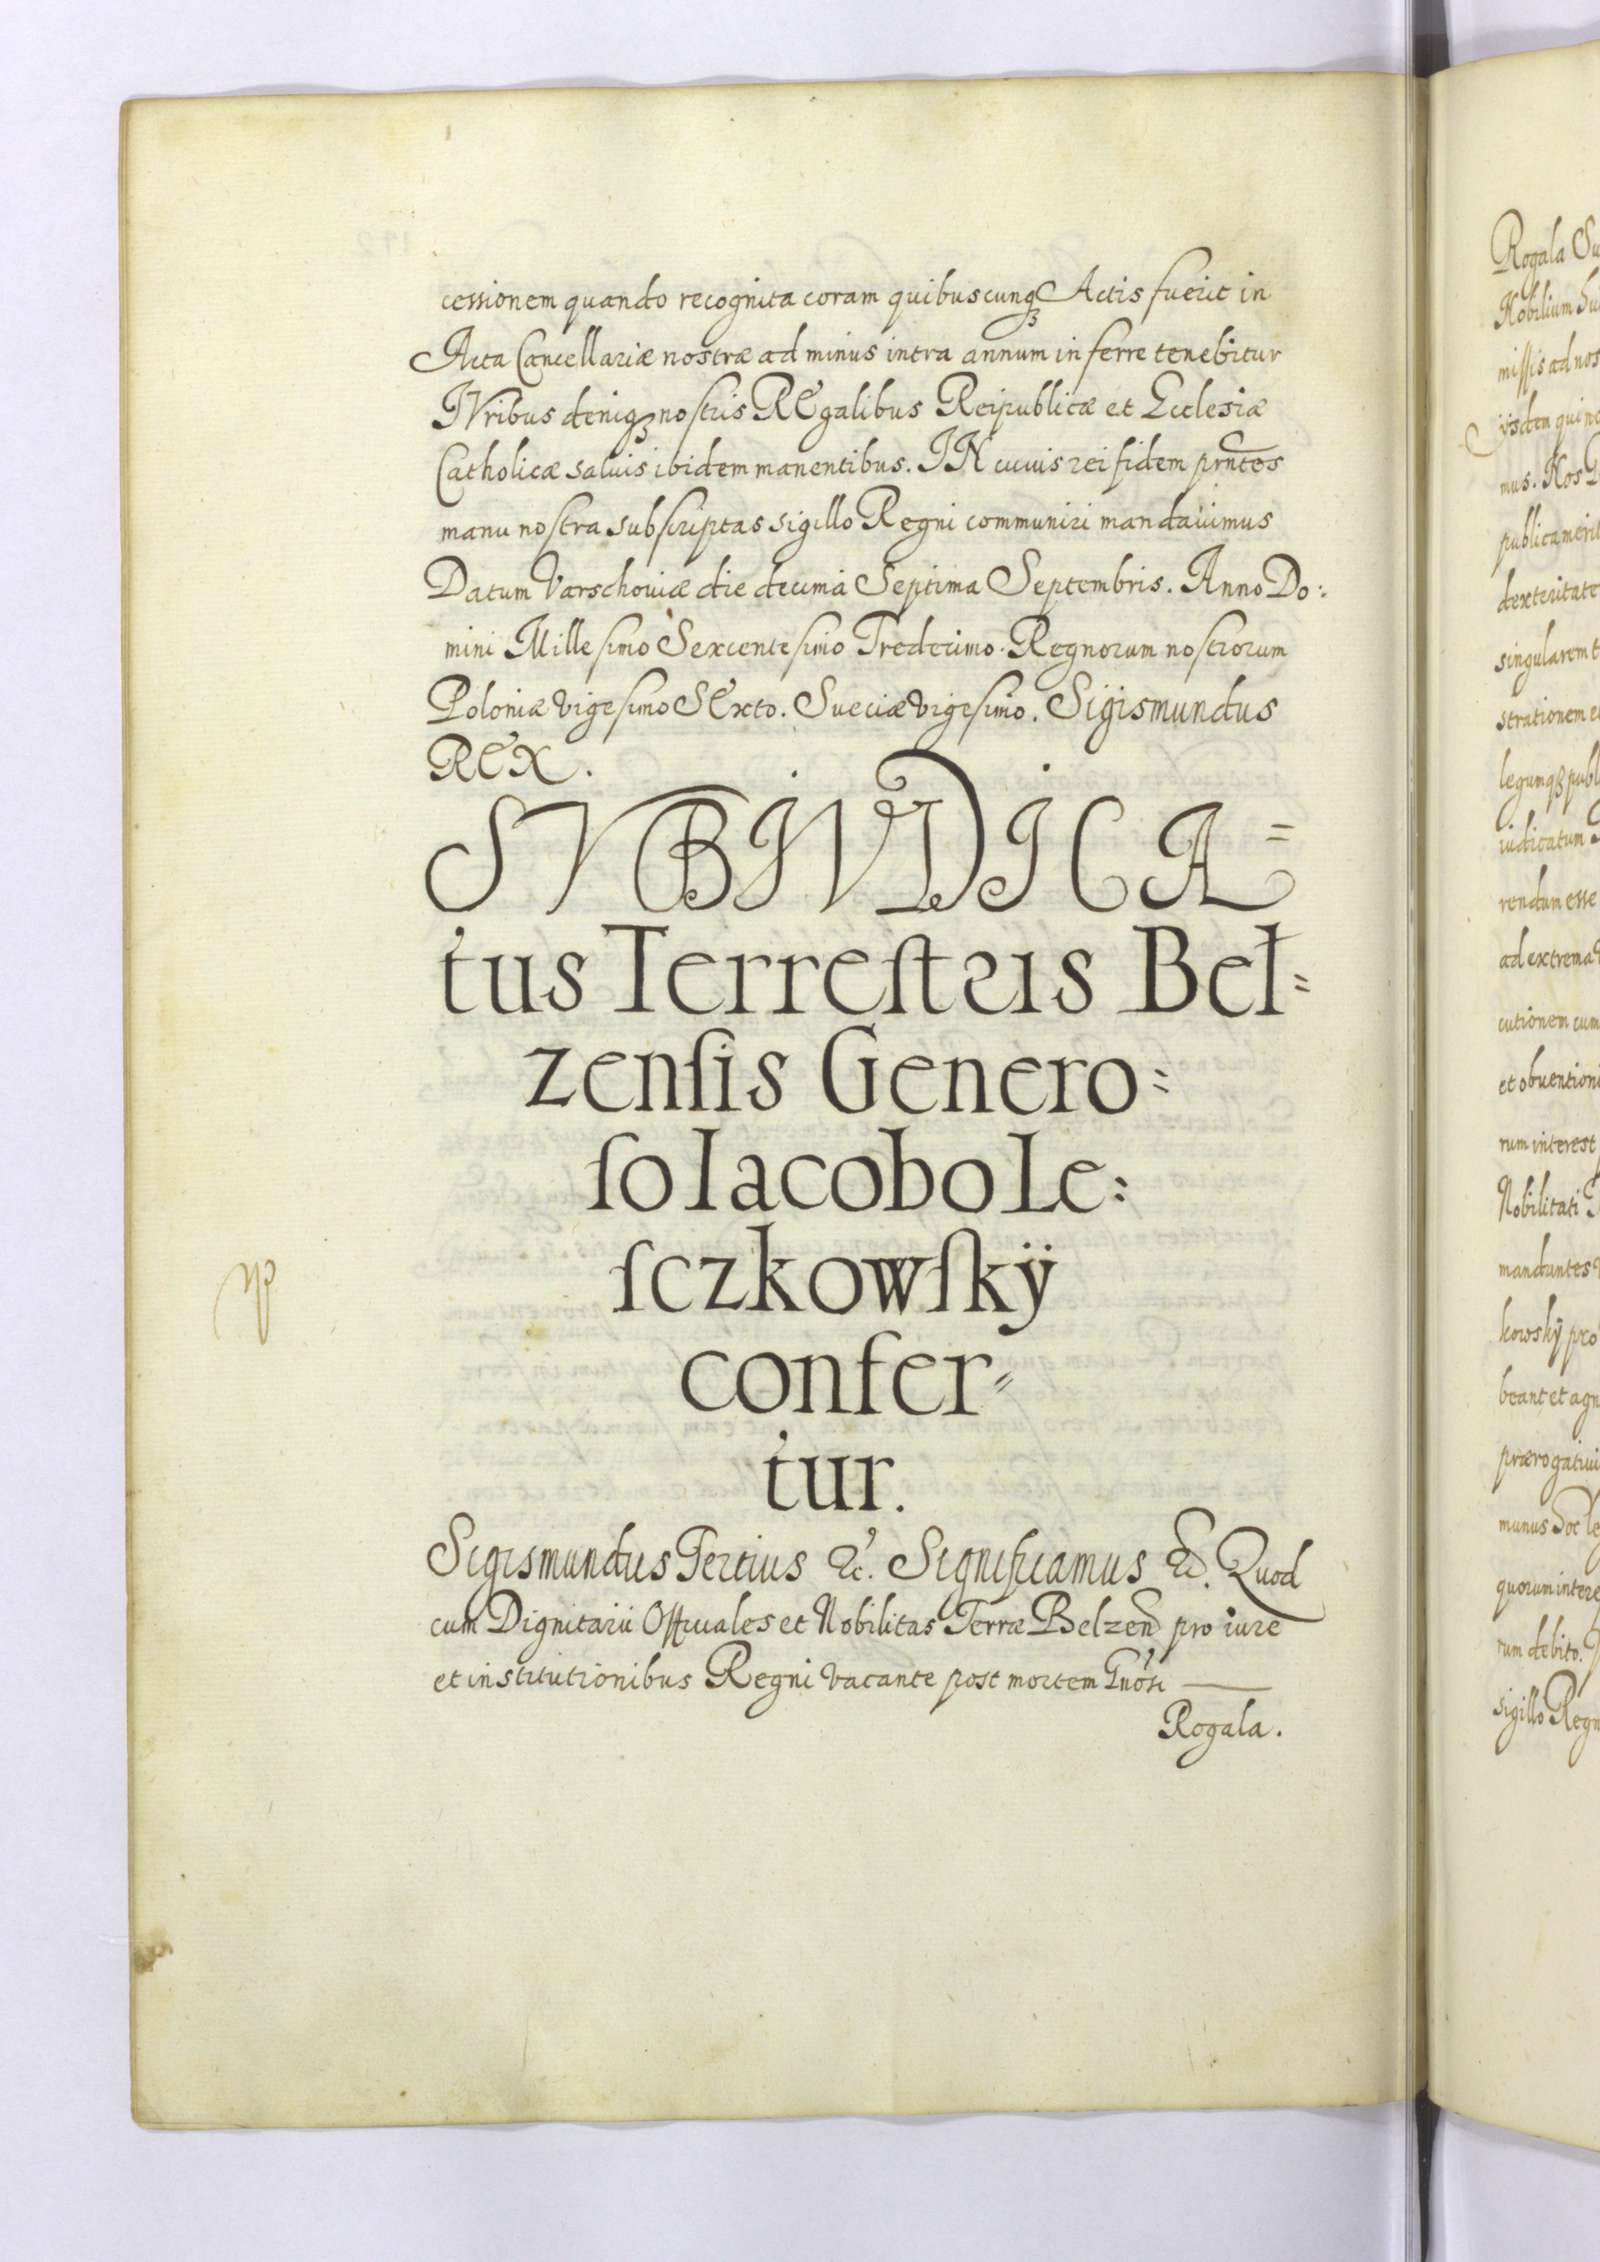 cessionem quando recognita coram quibuscunqꝫ Actis fuerit in
Acta Cancellariæ nostræ ad minus intra annum inferre tenebitur
IVribus deniqꝫ nostris REgalibus Reipublicæ et Ecclesiæ
Catholicæ salvis ibidem manentibus. IN cuius rei fidem prntes
manu nostra subscriptas sigillo Regni communiri mandavimus
Datum Varschoviæ die decimà Septima Septembris. Anno Do:
mini Millesimo Sexcentesimo Tredecimo. Regnorum nostrorum
Poloniæ vigesimo SExto. Sueciæ vigesimo. Sigismundus
REX.
SVBIVDICA=
tus Terreſtris Bel=
zenſis Genero=
ſo Iacobo Le=
ſczkowſkÿ
confer=
tur.
Sigismundus Tertius &c. Significamus &c. Quod
cum Dignitarii Officiales et Nobilitas Terræ Belzen pro iure
et institutionibus Regni vacante post mortem Gnosi
Rogala.
Rogala
Nobilium
missis ad nos
iisdem qui
mus. Nos
publica merit
dexteritate
singularem
strationem
legumqꝫ publ
iudicatum
rendum esse
ad extrema
cutionem cum
et obventioni
rum interest
Nobilitati
mandantes
kowskÿ pro
beant et agn
prærogativi
munus hoc
quorum intere
rum debito.
sigillo Regn